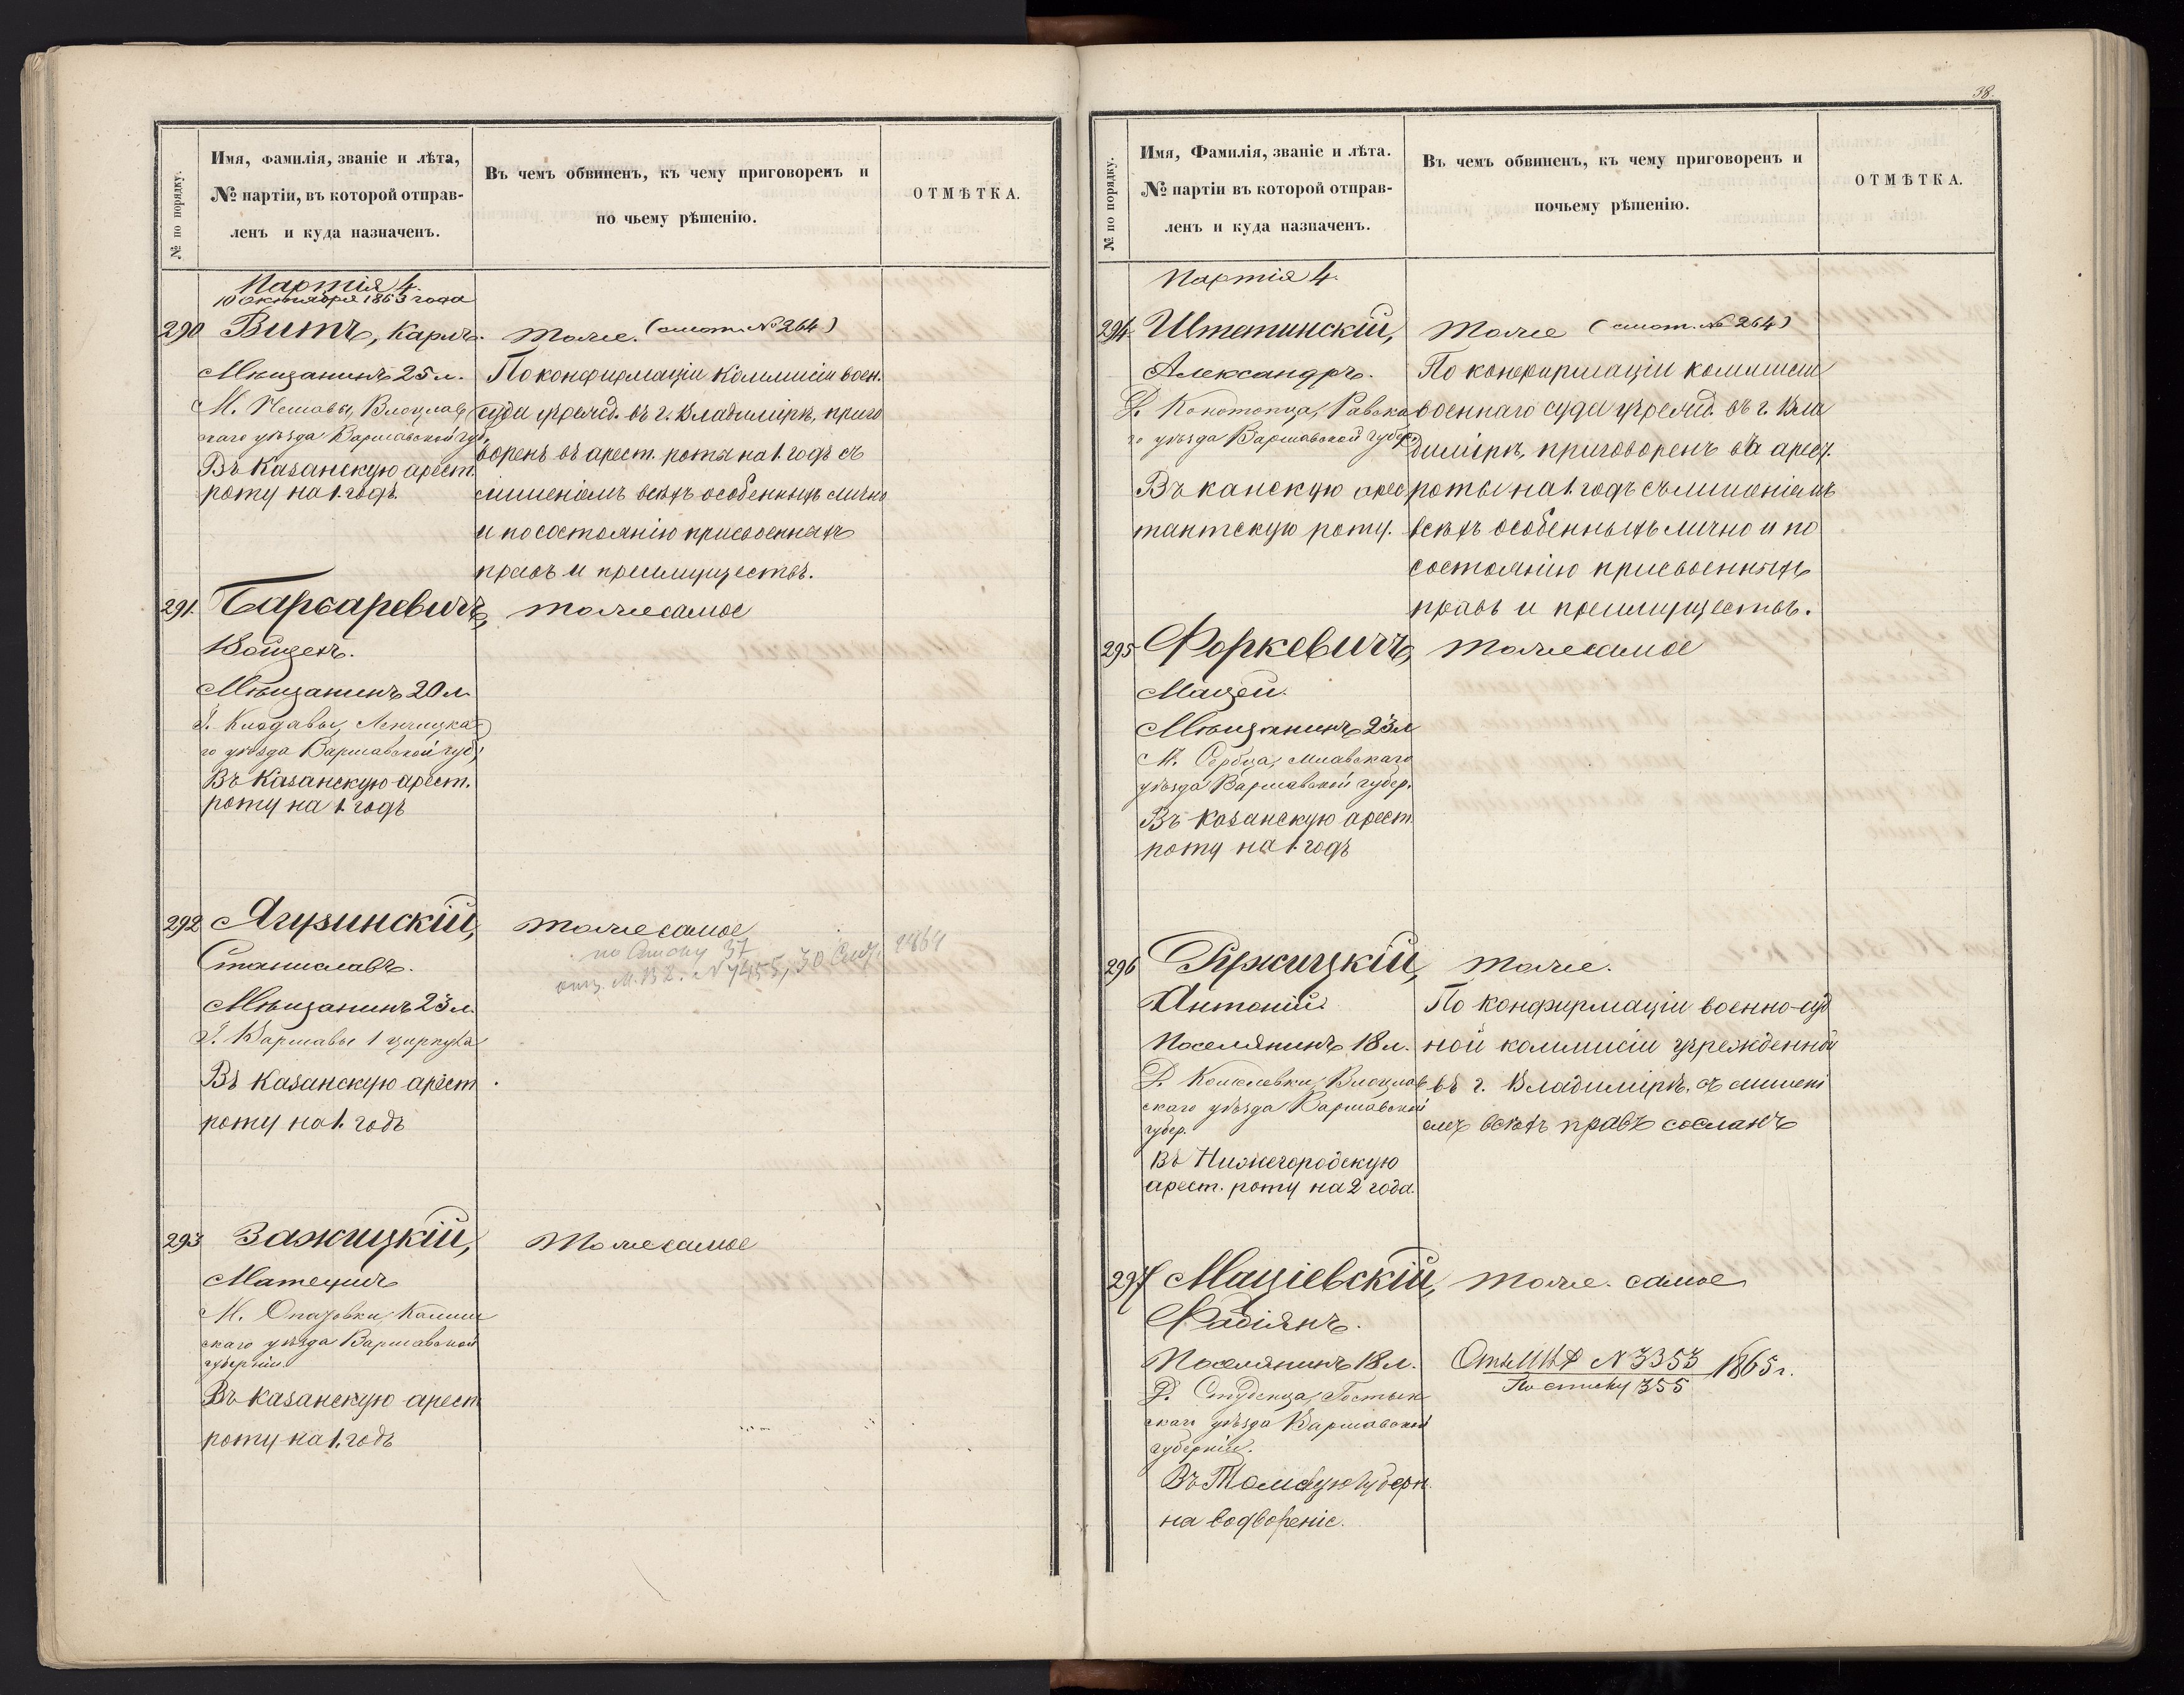 № по порядку.
Имя, фамилія, званіе и лѣта,
№ партіи, въ которой отправ-
ленъ и куда назначенъ.
Въ чемъ обвиненъ, къ чему приговоренъ и
по чьему рѣшенію.
ОТМѢТКА.
Партія 4.
10 октября 1863 года
290 Витъ, Карлъ.
Мѣщанинъ 25 л.
скаго уѣзда Варшавской губ.
Въ Казанскую арест.
роту на 1. годъ.
Тоже. (смот. № 264)
По конфирмаціи Коммисіи воен.
суда учрежд. въ г. Владимірѣ, приго
воренъ въ арест. роты на 1. годъ съ
лишеніемъ всѣхъ особенныхъ лично
и по состоянію присвоенныхъ
правъ и преимуществъ.
291. Барбаревичъ,
Войцехъ.
Мѣщанинъ 20 л.
Г. Клодавы, Ленчицка
го уѣзда Варшавской губ.
Въ Казанскую арест.
роту на 1 годъ
тоже самое
292 Ягузинскій,
Станиславъ.
Мѣщанинъ 23 л.
Г. Варшавы 1 циркула
Въ Казанскую арест
роту на 1. годъ
тоже самое
по списку 37
№ 7455, 30 1864
293 Зажицкій,
Матеушъ
М. Опатовки, Калиш
скаго уѣзда Варшавской
губерніи.
Въ Казанскую арест
роту на 1. годъ
Тоже самое
38.
№ по порядку.
Имя, Фамилія, званіе и лѣта.
№ партіи въ которой отправ-
ленъ и куда назначенъ.
Въ чемъ обвиненъ, къ чему приговоренъ и
почьему рѣшенію.
ОТМѢТКА.
Партія 4.
294. Штетинскій,
Александръ.
Д. Конотопца, Равска
го уѣзда Варшавской губер.
Въ канскую арес
тантскую роту.
Тоже (смот. № 264)
По конфирмаціи коммисіи
военнаго суда учрежд. въ г. Вла
димірѣ, приговоренъ въ арест.
роты на 1. годъ съ лишеніемъ
всѣхъ особенныхъ лично и по
состоянію присвоенныхъ
правъ и преимуществъ.
295 Форкевичъ,
Мацей.
Мѣщанинъ 23 л
М. Серпца, Млавскаго
уѣзда Варшавской губер.
Въ Казанскую арест.
роту на 1. годъ
тоже самое
296 Гржицкій,
Антоній.
Поселянинъ 18 л.
скаго уѣзда Варшавской
губер.
Въ Нижегородскую
арест. роту на 2 года.
тоже.
По конфирмаціи военно-суд
ной коммисіи учрежденной
въ г. Владимірѣ, съ лишені
емъ всѣхъ правъ сосланъ
297 Маціевскій,
Фабіянъ.
Поселянинъ 18 л.
Д. Студенца, Гостын
скаго уѣзда Варшавской
губерніи.
Въ Томскую губерн.
на водвореніе.
тоже. самое
№ 3353 1865 г.
По списку 355